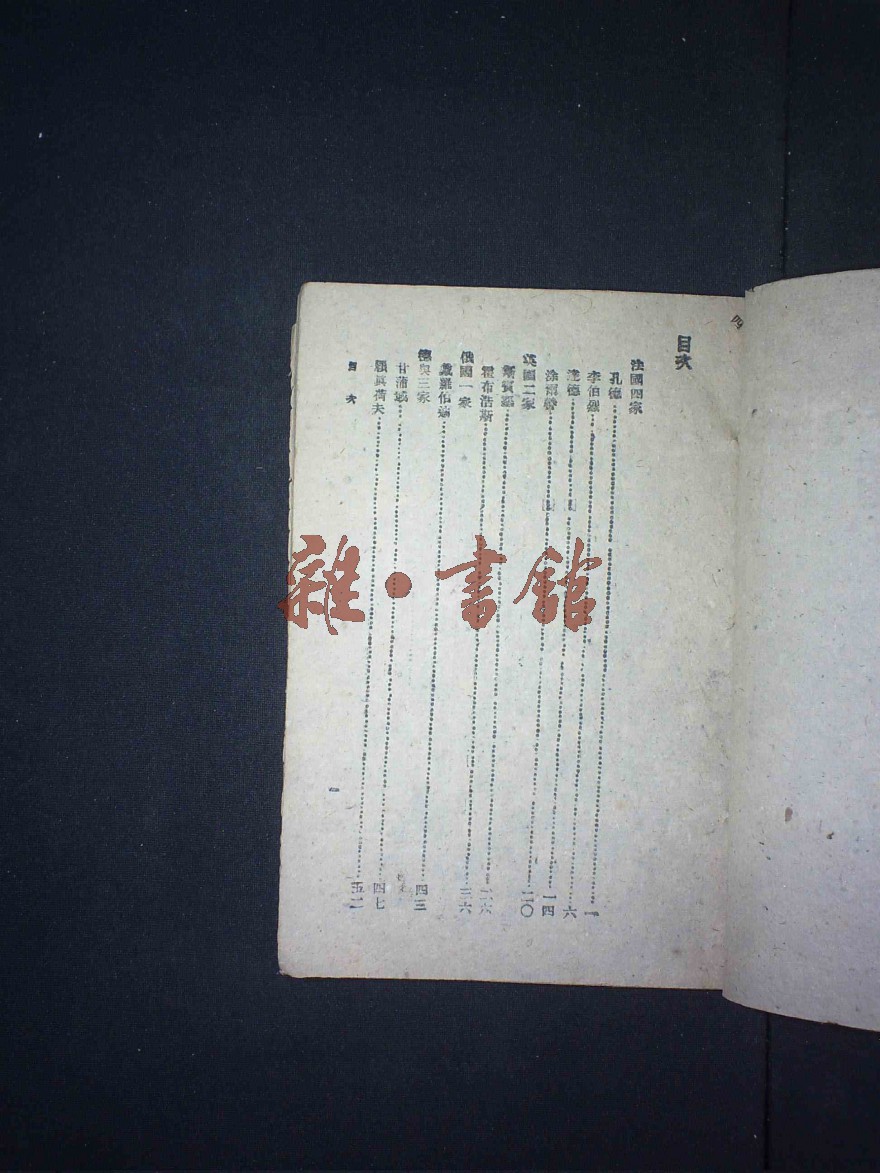 四
目次
法國四家
孔德……一
李伯烈……六
達德……一四
涂爾幹……二〇
英國二家
斯賓塞……二六
霍布浩斯……三六
俄國一家
羅伯……四三
德奧三家
甘蒲……四七
顯真荷夫……五二
目次
一
雜·書館